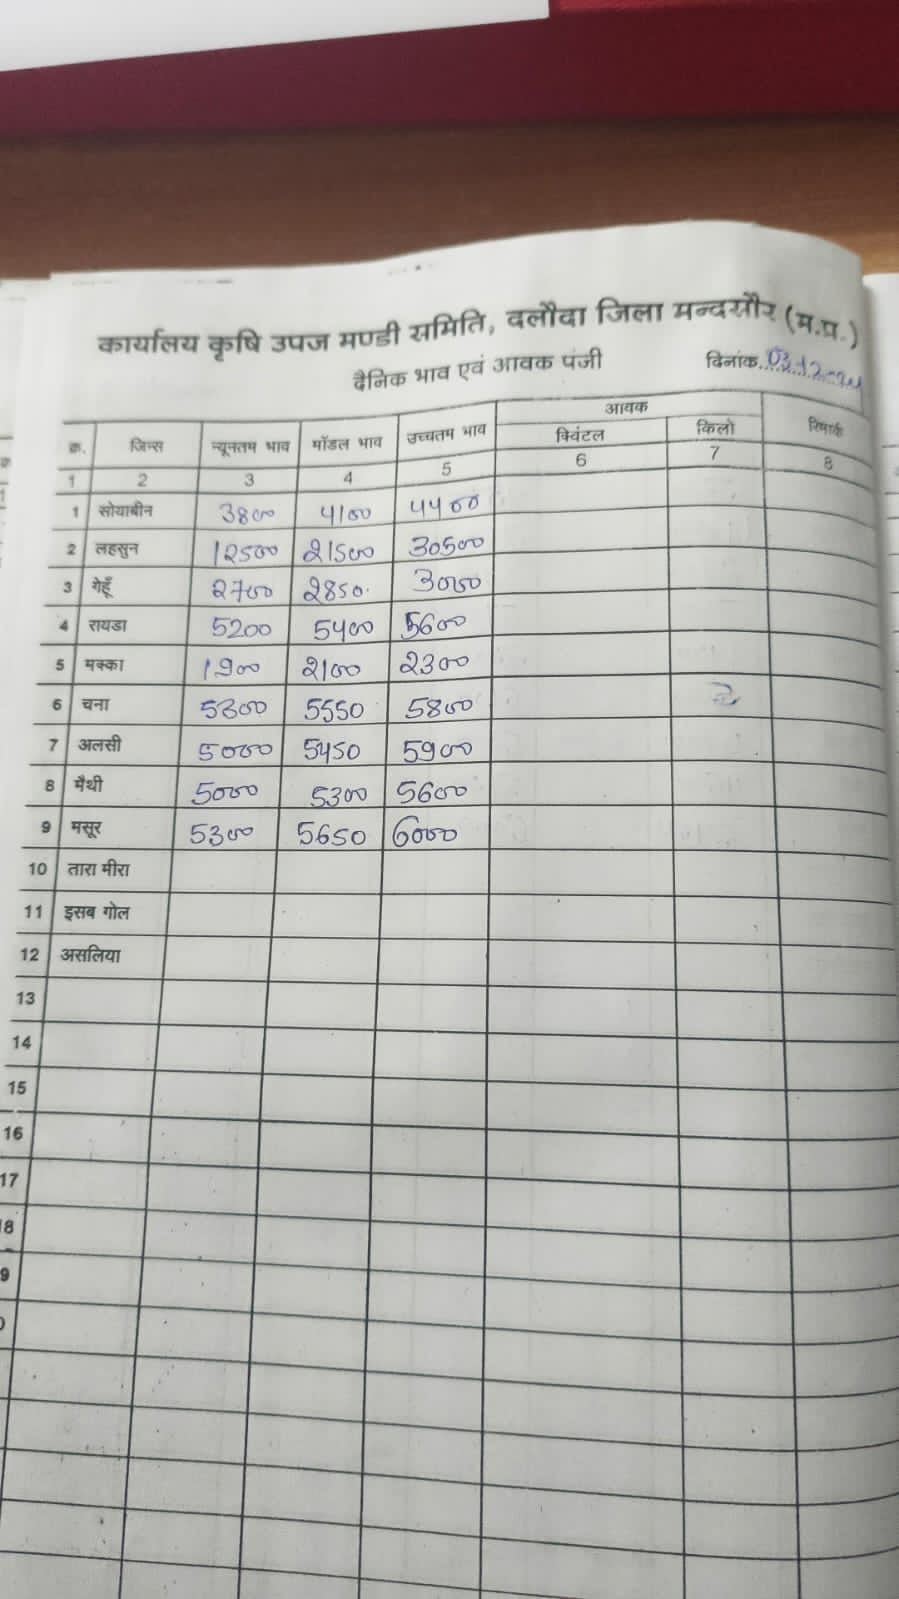 कार्यालय कृषि उपज मण्डी समिति, दलौदा जिला मन्दसौर (म.प्र.)
दैनिक भाव एवं आवक पंजी
दिनांक 03-12-24
क्र. जिन्स न्यूनतम भाव मॉडल भाव उच्चतम भाव आवक रिमार्क
क्विंटल किलो
1 2 3 4 5 6 7 8
1 सोयाबीन 3800 4100 4400
2 लहसुन 12500 21500 30500
3 गेहूँ 2700 2850 3000
4 रायडा 5200 5400 5600
5 मक्का 1900 2100 2300
6 चना 5300 5550 5800
7 अलसी 5000 5450 5900
8 मैथी 5000 5300 5600
9 मसूर 5300 5650 6000
10 तारा मीरा
11 इसब गोल
12 असलिया
13
14
15
16
17
18
9